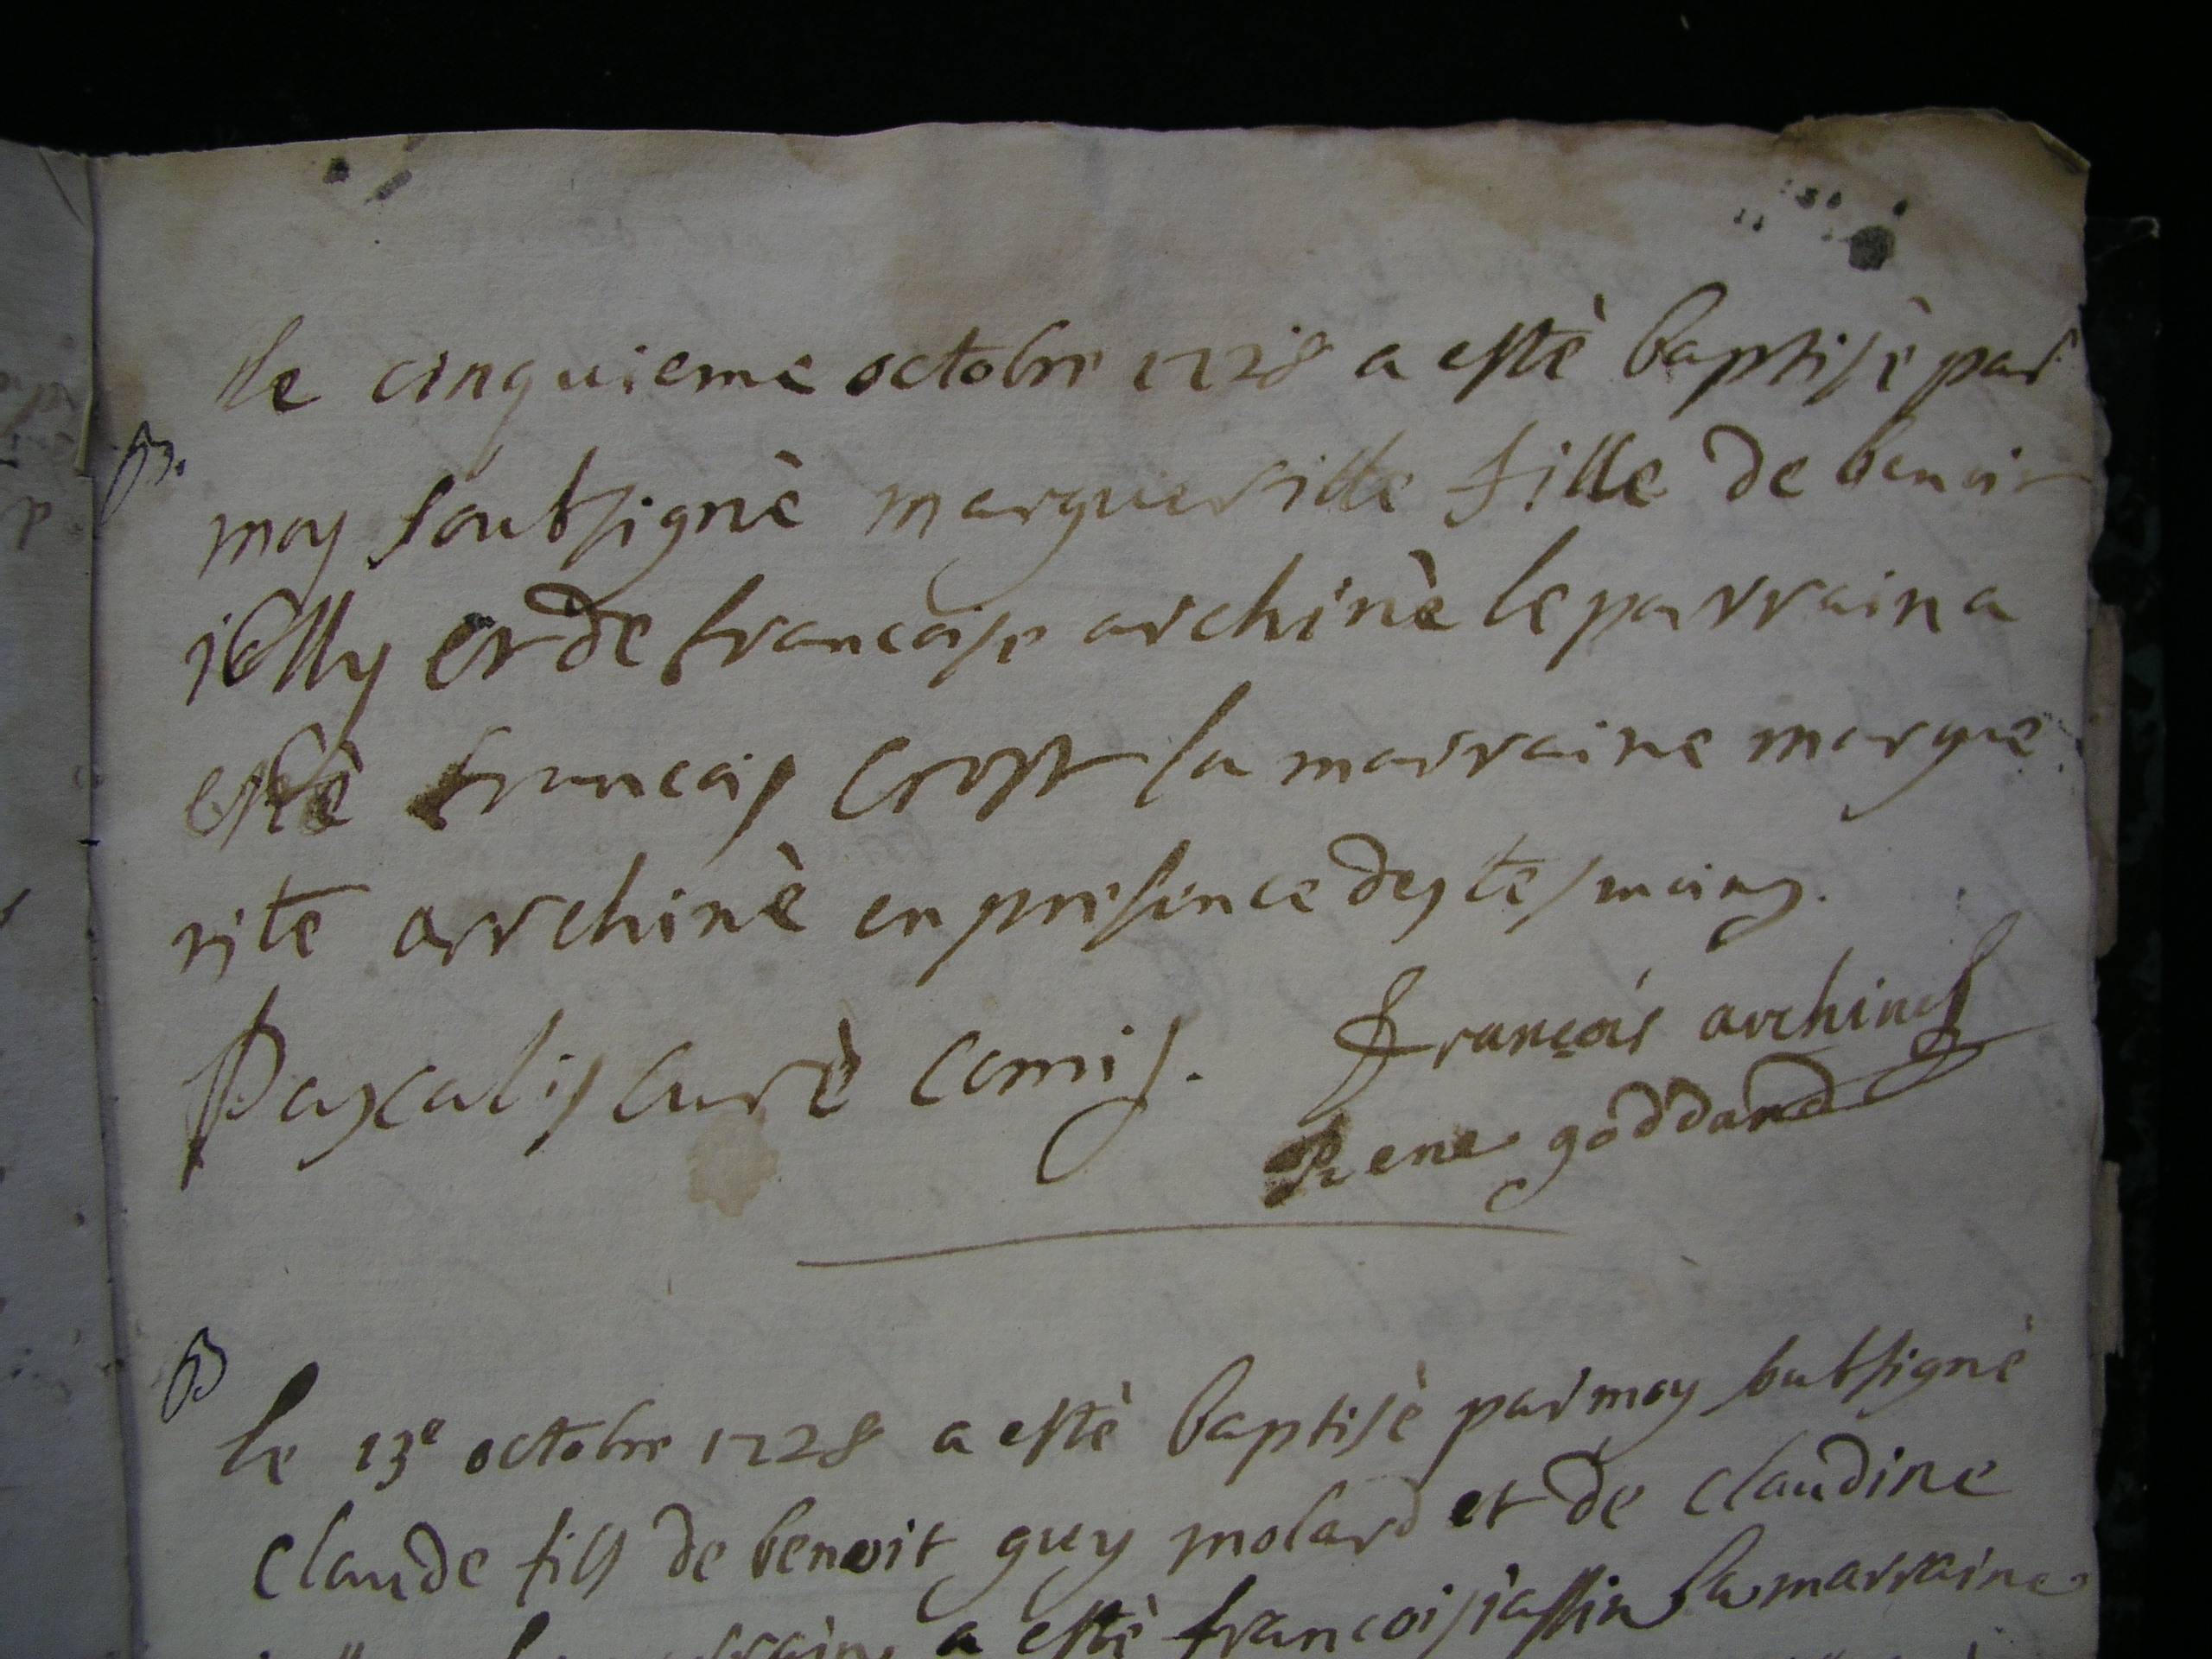 le cinquieme octobre 1728 a esté baptisè par
B.
moy soubsignè margueritte fille de benoit
jolly et de francoise archinè le parraina
estè francois Crost la marraine margue
rite archinè en presence des tesmoins.
Pascalis curè comis. François archinet
Rene goddard
B
le 13e octobre 1728 a estè baptisè par moy subsignè
claude fils de benoit guy molard et de claudine
a estè francois jassin la marraine